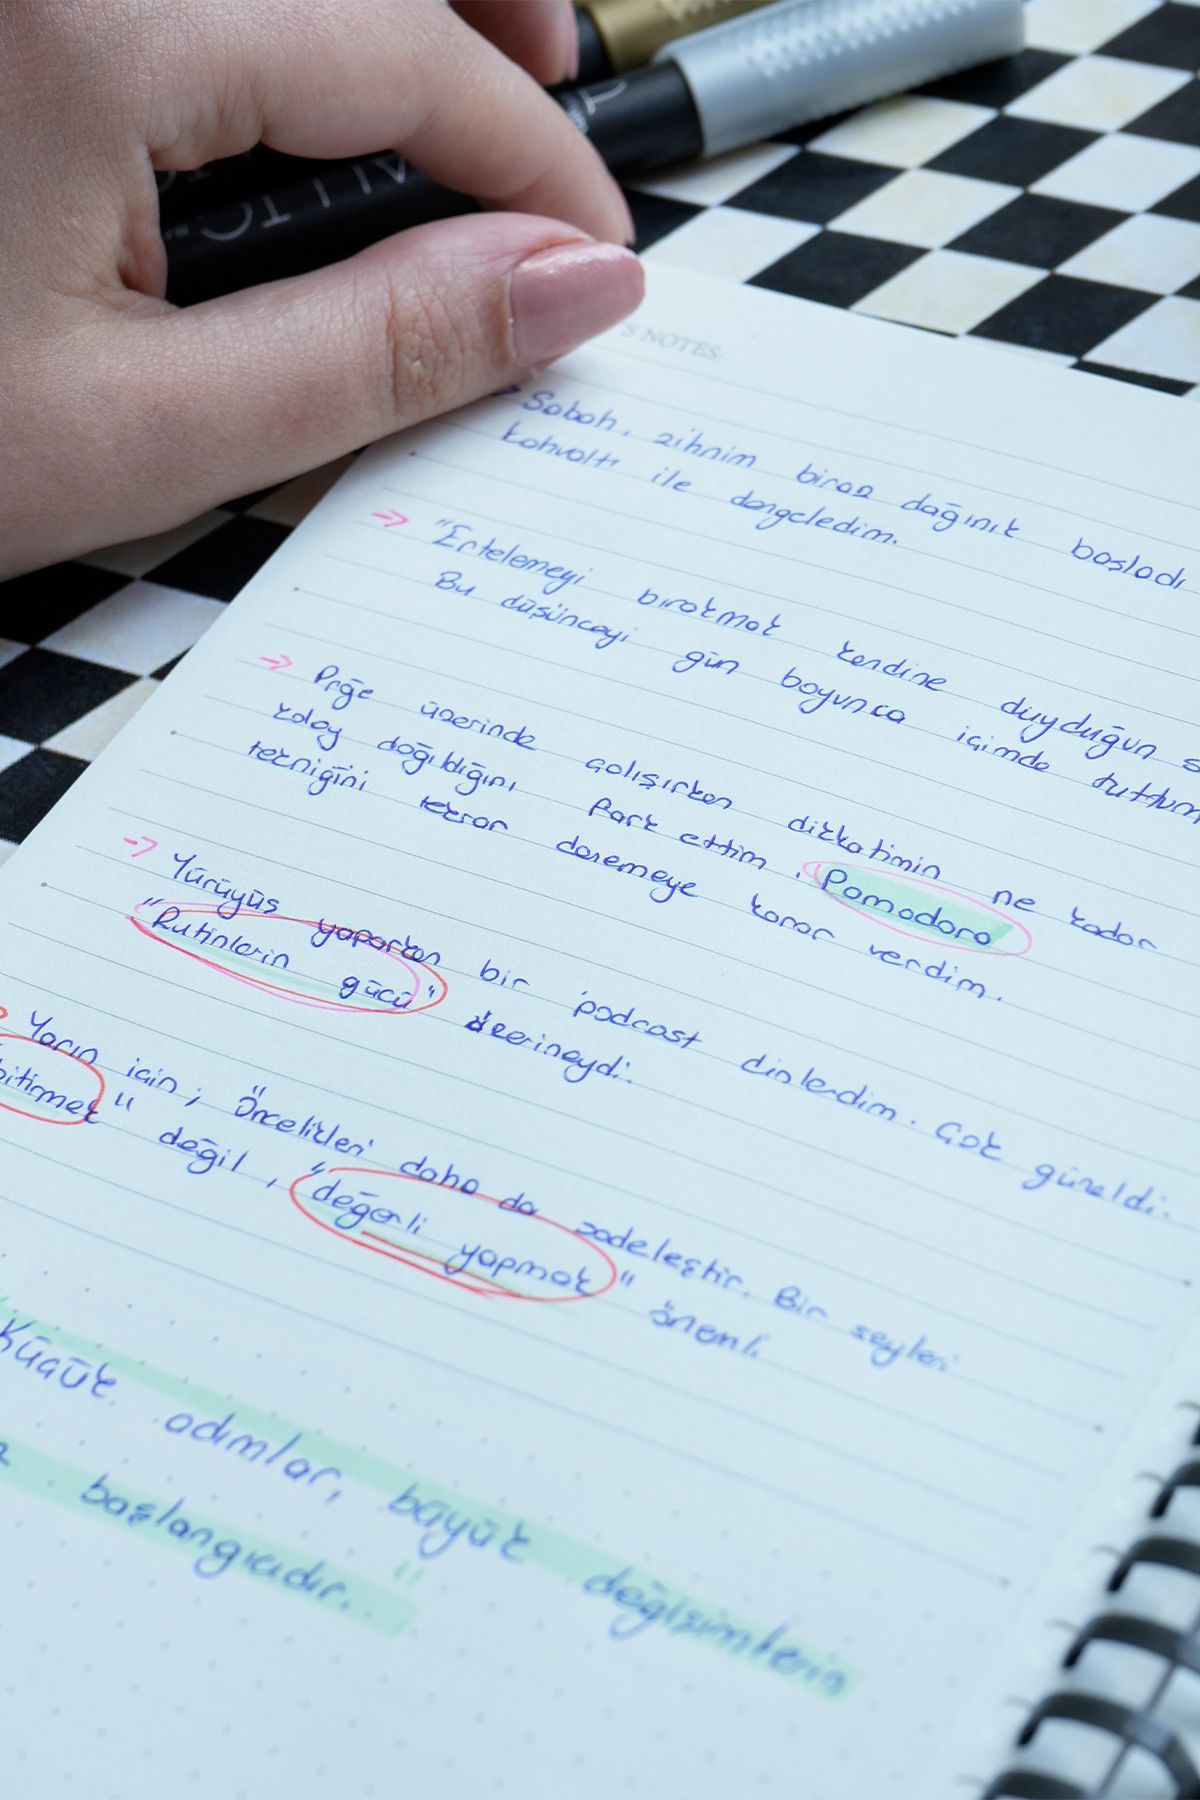 'S NOTES:
Sabah, zihnim biraz dağınık başladı
kahvaltı ile dengeledim.
→ "Ertelemeyi bırakmak kendine duyduğun
Bu düşünceyi gün boyunca içimde tuttum
→ Prğe üzerinde çalışırken dikkatimin ne kadar
kolay dağıldığını fark ettim. Pomodoro
tekniğini tekrar denemeye karar verdim.
→ Yürüyüş yaparken bir podcast dinledim. Çok güzeldi.
"Rutinlerin gücü" üzerineydi.
Yarın için; "Öncelikleri daha da sadeleştir. Bir şeyleri
bitirmek" değil, "değerli yapmak" önemli
Küçük adımlar, büyük değişimlerin
başlangıcıdır."